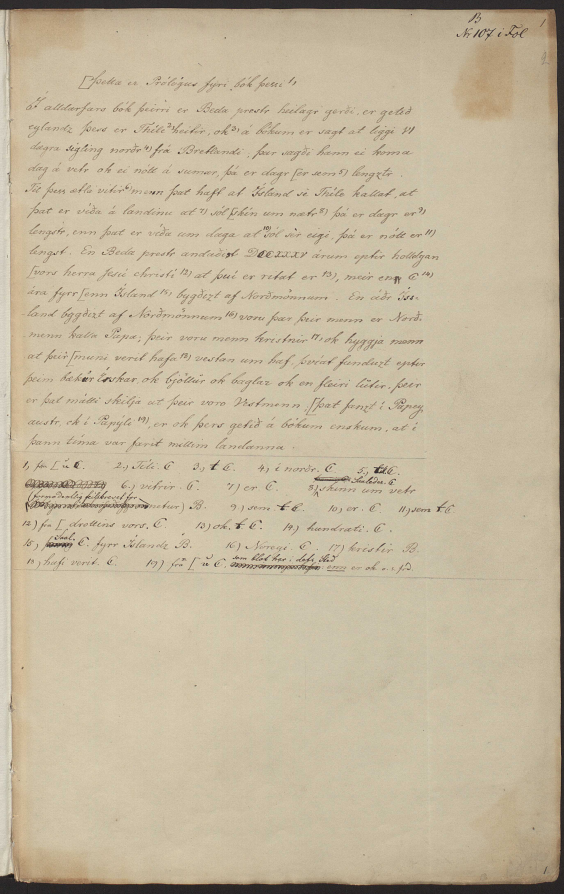 B
Nr 107 i Fol
1
[Þetta er Prólógus fyri bók þessi 1)
Í alldarfars bók þeirri er Beda prestr heilagr gerði, er getið
eylandz þess er Thile 2) heitir, ok 3) á bókum er sagt at liggi VI
dægra sigling norðr 4) frá Bretlandi; þar sagði hann ei koma
dag á vetr ok ei nótt á sumar, þá er dagr [er sem 5) lengztr.
Til þess ætla vitrir 6) menn þat haft at Ísland sé Thile kallat, at
þat er víða á landinu at 7) sól [skín um nætr 8) þá er dagr er 9)
lengstr, enn þat er víða um daga at 10) sól sér eigi, þá er nótt er 11)
lengst. En Beda prestr andaðist DCCXXXV árum eptir holldgan
[vors herra Jesú christi 12) at því er ritat er 13), meir enn C 14)
ára fyrr [enn Ísland 15) bygðizt af Norðmönnum. En áðr Ís-
land bygðizt af Norðmönnum 16) voru þar þeir menn er Norð-
menn kalla Papa; þeir voru menn kristnir 17) ok hyggja menn
at þeir [muni verit hafa 18) vestan um haf, þvíat funduzt epter
þeim bækur írskar, ok bjöllur ok baglar ok en fleiri luter, þeir
er þat mátti skilja at þeir voro Vestmenn. [þat fanzt í Papey
austr, ok í Papýli 19), er ok þess getið á bókum enskum, at í
þann tíma var farit millim landanna.
1, fra [ u C. 2,) Tili. C 3,) t C. 4) í norðr. C 5,) C.
6.) vetrir. C. 7) er C. 8) skinn um vetr
B. 9) sem t C. 10) er. C. 11) sem t C
12) fra [ drottens vors. C. 13) ok. t C. 14) hundrati. C.
15) C. fyrr Íslandz B. 16) Noregi. C 17) kristir B.
18) hafi verit. C. 19) frá [ u C. enn er ok